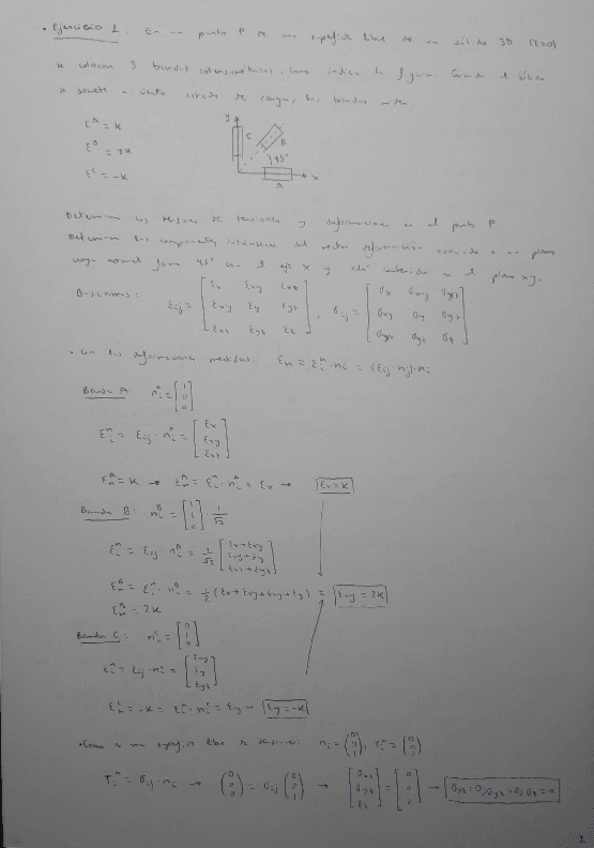 • Ejercicio 1: En un punto P de una superficie libre de un sólido 3D (z=0)
se colocan 3 bandas extensométricas, como indica la figura. Cuando el sólido
se somete a cierto estado de cargas, las bandas miden:
ε^A = k
ε^B = 2k
ε^C = -k
y
C
B
45°
A
x
Determinar los tensores de tensiones y deformaciones en el punto P.
Determinar las componentes intrínsecas del vector deformación asociado a un plano
cuya normal forma 45° con el eje x y está contenida en el plano xy.
Buscamos: ε_ij = [ε_x ε_xy ε_xz; ε_xy ε_y ε_yz; ε_xz ε_yz ε_z], σ_ij = [σ_x σ_xy σ_xz; σ_xy σ_y σ_yz; σ_xz σ_yz σ_z]
• Con las deformaciones medidas: ε_n = ε_i^n · n_i = (ε_ij · n_j) · n_i
Banda A: n_i^A = [1; 0; 0]
ε_i^n = ε_ij · n_i^A = [ε_x; ε_xy; ε_xz]
ε_n^A = k → ε_n^A = ε_i^n · n_i^A = ε_x → ε_x = k
Banda B: n_i^B = [1; 1; 0] · 1/√2
ε_i^n = ε_ij · n_i^B = 1/√2 [ε_x+ε_xy; ε_xy+ε_y; ε_xz+ε_yz]
ε_n^B = ε_i^n · n_i^B = 1/2 (ε_x + ε_xy + ε_xy + ε_y) = ε_xy = 2k
ε_n^B = 2k
Banda C: n_i^C = [0; 1; 0]
ε_i^n = ε_ij · n_i^C = [ε_xy; ε_y; ε_yz]
ε_n^C = -k = ε_i^n · n_i^C = ε_y → ε_y = -k
• Como es una superficie libre de tensiones: n_i = (0; 0; 1), T_i^n = (0; 0; 0)
T_i^n = σ_ij · n_i → (0; 0; 0) = σ_ij (0; 0; 1) → [σ_xz; σ_yz; σ_z] = [0; 0; 0] → σ_xz = 0; σ_yz = 0; σ_z = 0
1